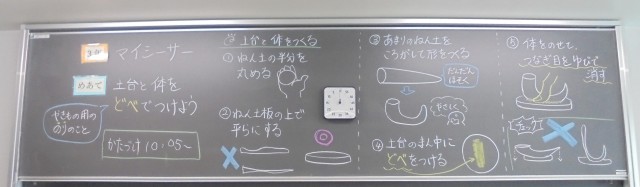 マイシーサー
めあて
土台と体を
どべでつけよう
やきもの用の
のりのこと
かたづけ 10:05~
土台と体をつくる
①ねん土の半分を
丸める
②ねん土板の上で
平らにする
③あまりのねん土を
ころがして形をつくる
やさしく
④土台のまん中に
どべをつける
⑤体をのせて、
つなぎ目をゆびで
消す